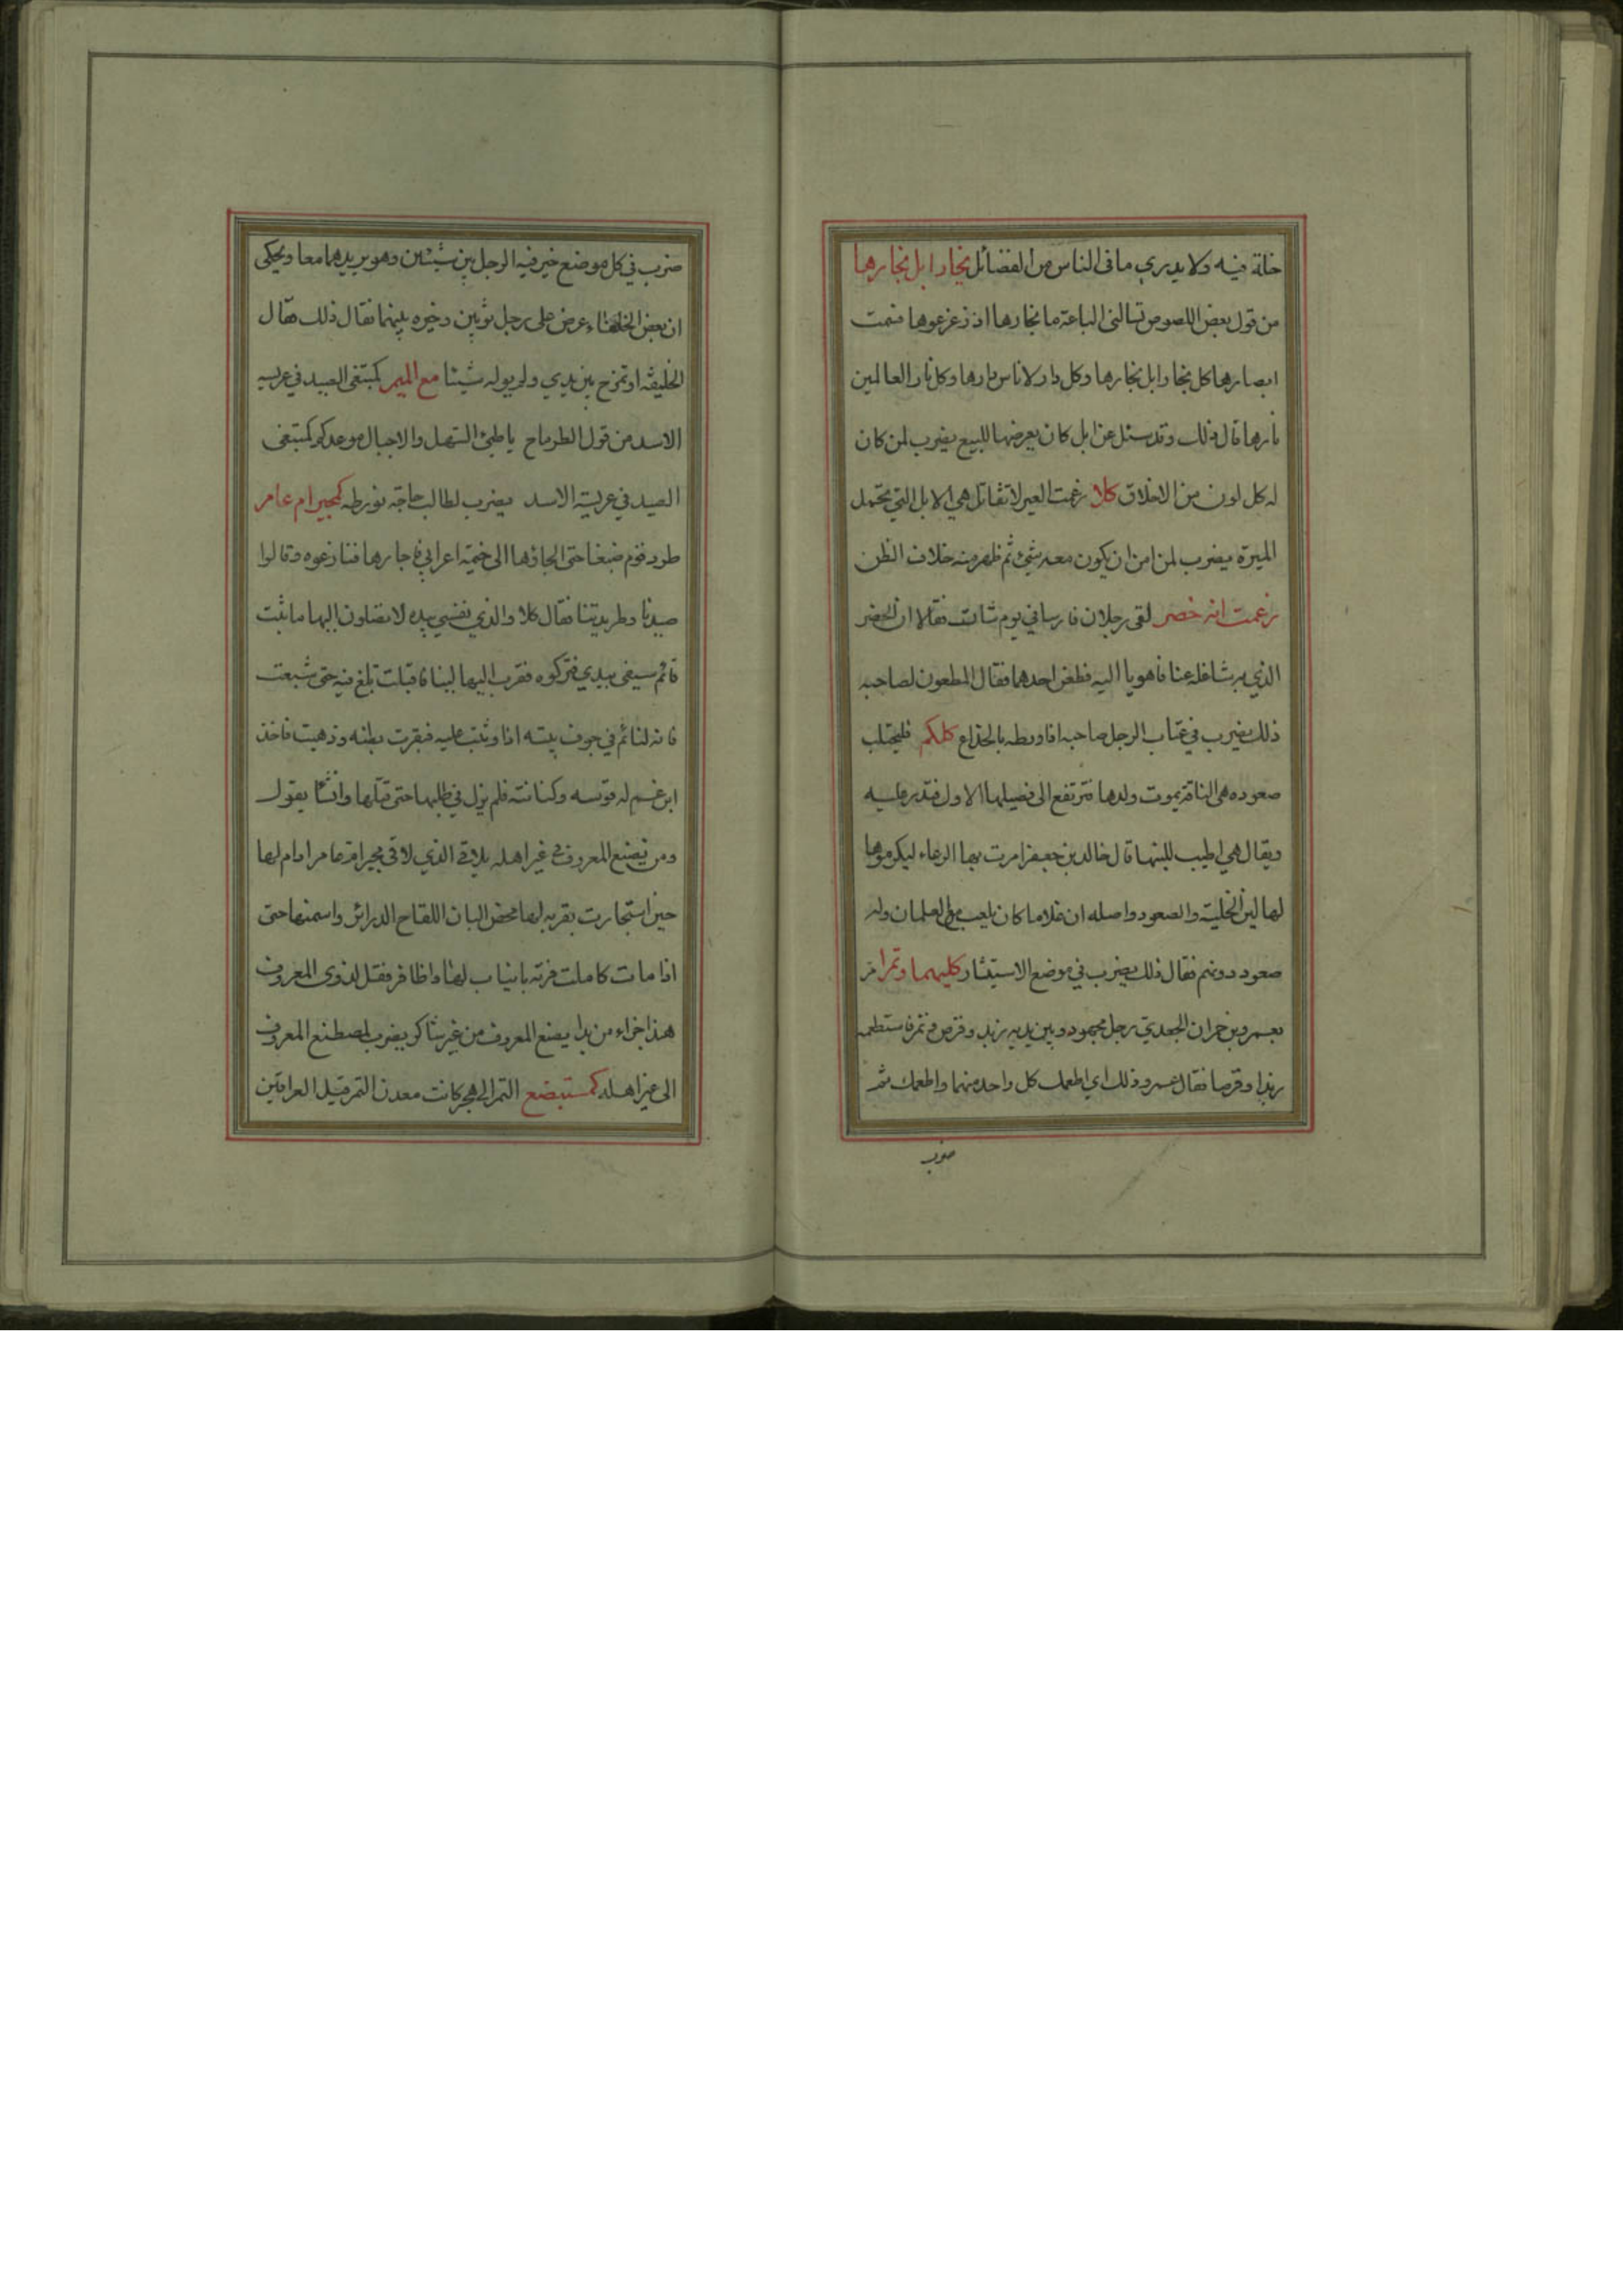 خلة فيه ولا يدري ما في الناس من الفضائل نجار ابل نجارها
من قول بعض اللصوص تسالنى الباعة ما نجارها اذ زعزعوها فسمت
ابصارها كل نجار ابل نجارها وكل دار لاناس دارها وكل نار العالمين
نارها قال ذلك وقد سئل عن ابل كان يعرضها للبيع يضرب لمن كان
له كل لون من الاخلاق كلا زعمت العير لا تقاتل هي الابل التي تحتمل
الميرة يضرب لمن امن ان يكون معه شئ ثم ظهر منه خلاف الظن
زعمت انه خصر لقى رجلان فارسا في يوم شات فقالا ان الخصر
الذي به شاغله عنا فاهويا اليه فطعن احدهما فقال المطعون لصاحبه
ذلك يضرب في عتاب الرجل صاحبه اذا ورطه بالخداع كلكم فليحتلب
صعوده هي الناقة يموت ولدها فترتفع الى فصيلها الاول فتدر عليه
ويقال هي اطيب للبنها قال خالد بن جعفر امرت بها الرعاء ليكرموها
لها لبن الخلية والصعود واصله ان غلاما كان يلعب مع الغلمان وله
صعود دونهم فقال ذلك يضرب في موضع الاستيثار كليهما وتمرا مر
بعمرو بن حمران الجعدي رجل مجهود وبين يديه زبد وقرص وتمر فاستطعمه
زبدا وقرصا فقال عمرو ذلك اي اطعمك كل واحد منهما واطعمك تمر
ضرب
ضرب في كل موضع خير فيه الرجل بين شيئين وهو يريدهما معا ويحكى
ان بعض الخلفاء عرض على رجل ثوبين وخيره بينهما فقال ذلك فقال
الخليفة او تمزح بين يدي ولم يوله شيئا مع الميم كمبتغى الصيد في عريسه
الاسد من قول الطرماح يا طيئ السهل والاجبال موعدكم كمبتغى
الصيد في عريسة الاسد يضرب لطالب حاجة تورطه كمجير ام عامر
طرد قوم ضبعا حتى الجاؤها الى خيمة اعرابي فاجارها فنازعوه وقالوا
صيدنا وطريدتنا فقال كلا والذي نفسي بيده لا تصلون اليها ما ثبت
قائم سيفى بيدي فتركوه فقرب اليها لبنا فاقبلت تلغ فيه حتى شبعت
فانه لنائم في جوف بيته اذا وثبت عليه فبقرت بطنه وذهبت فاخذ
ابن عم له قوسه وكنانته فلم يزل في طلبها حتى قتلها وانشا يقول
ومن يصنع المعروف مع غير اهله يلاقي الذي لاقى مجير ام عامر ادام لها
حين استجارت بقربه لها محض البان اللقاح الدرائر واسمنها حتى
اذا ما تكاملت فرته بانياب لها واظافر فقل لذوى المعروف
هذا جزاء من بدا يصنع المعروف من غير شاكر يضرب لمصطنع المعروف
الى غير اهله كمستبضع التمر الى هجر كانت معدن التمر قبل العراقين